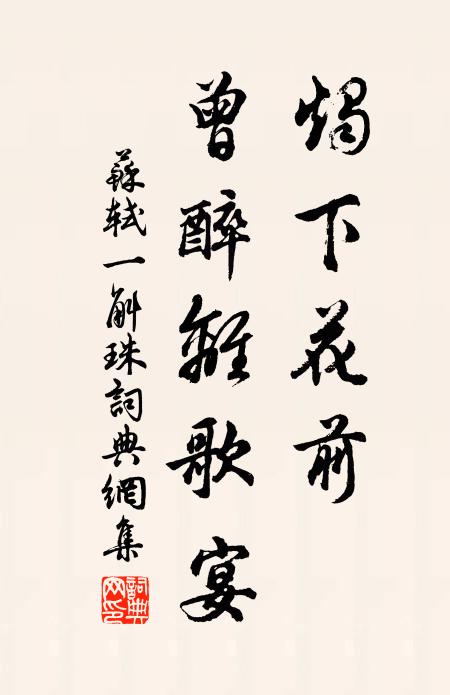 燭下花前
曾醉離歌宴
蘇軾一斛珠詞典網集
詞典
网印